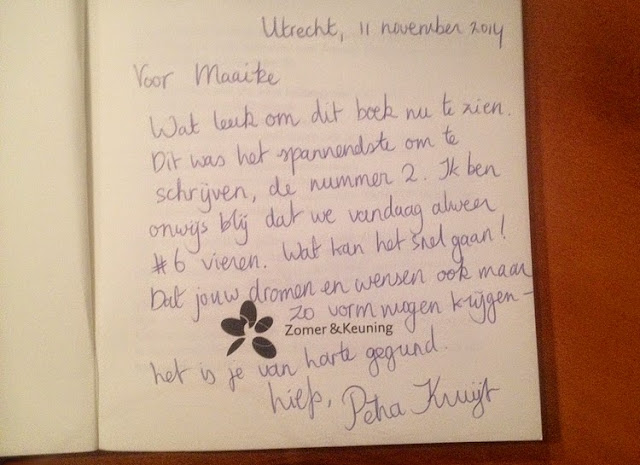 Utrecht, 11 november 2014
Voor Maaike
Wat leuk om dit boek nu te zien.
Dit was het spannendste om te
schrijven, de nummer 2. Ik ben
onwijs blij dat we vandaag alweer
#6 vieren. Wat kan het snel gaan!
Dat jouw dromen en wensen ook maar
zo vorm mogen krijgen -
Zomer & Keuning
het is je van harte gegund.
liefs, Petra Kruijt